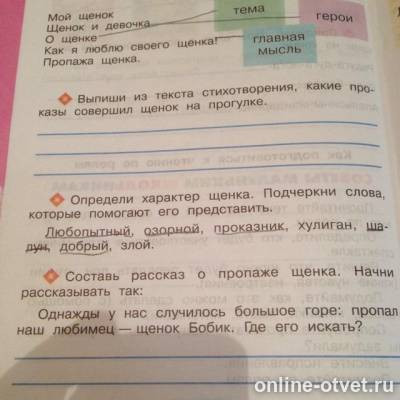 Мой щенок
Щенок и девочка
О щенке
Как я люблю своего щенка!
Пропажа щенка.
тема
герои
главная
мысль
Выпиши из текста стихотворения, какие про-
казы совершил щенок на прогулке.
Определи характер щенка. Подчеркни слова,
которые помогают его представить.
Любопытный, озорной, проказник, хулиган, ша-
лун, добрый, злой.
Составь рассказ о пропаже щенка. Начни
рассказывать так:
Однажды у нас случилось большое горе: пропал
наш любимец — щенок Бобик. Где его искать?
online-otvet.ru